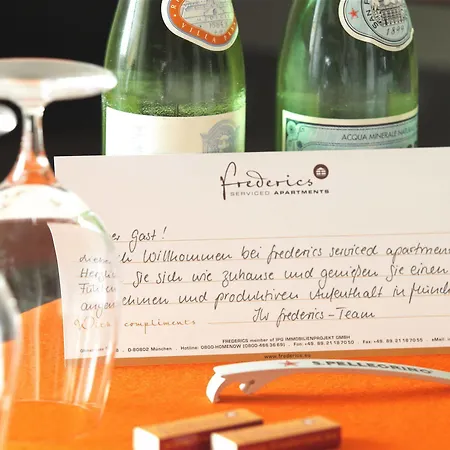 VILLA
1899
ACQUA MINERALE
frederics
SERVICED APARTMENTS
Gast!
Willkommen bei frederics serviced apartments
Sie sich wie zuhause und genießen Sie einen
und produktiven Aufenthalt in
Ihr frederics-Team
compliments
FREDERICS member of IPG IMMOBILIENPROJEKT GMBH
D-80802 München. • Hotline: 0800-HOMENOW (0800-466 36 69) • Fon: +49. 89. 21 16 70 50 • Fax: +49. 89. 21 16 70 55
www.frederics.eu
S.PELLEGRINO